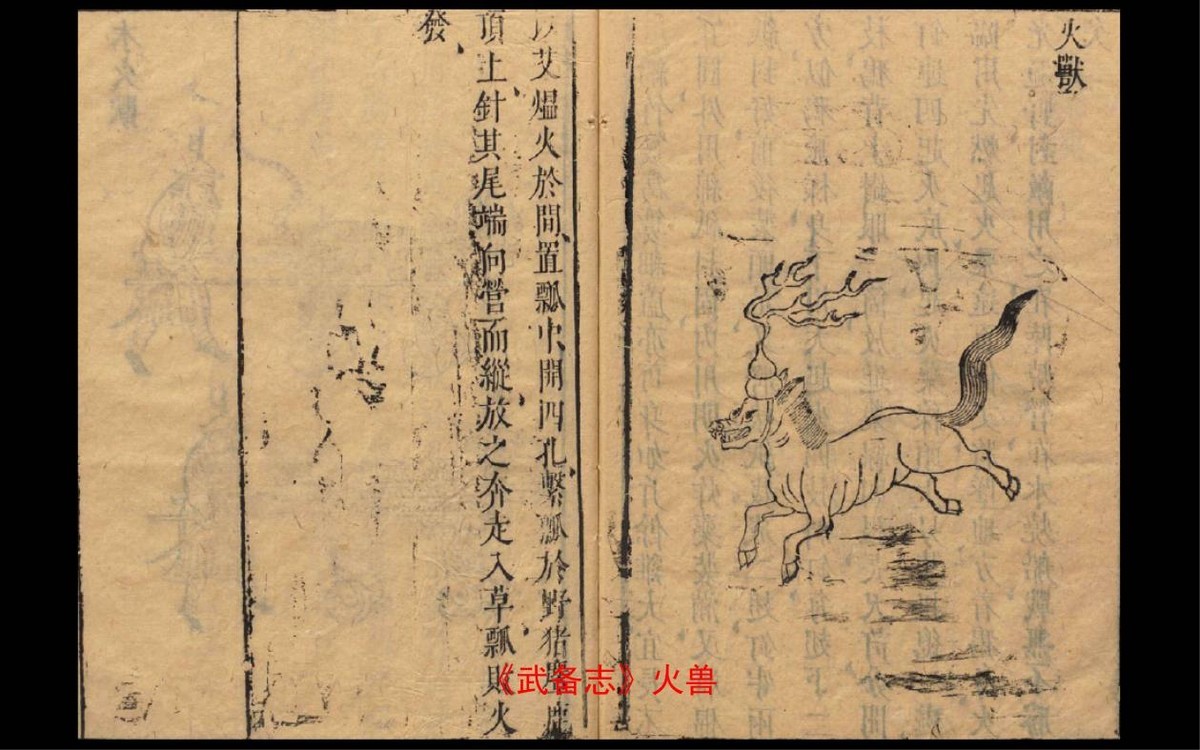 火獸
以艾熅火於間置瓢中開四孔繫瓢於野猪鹿
項上針其尾端向營而縱放之奔走入草瓢則火
發
《武备志》火兽